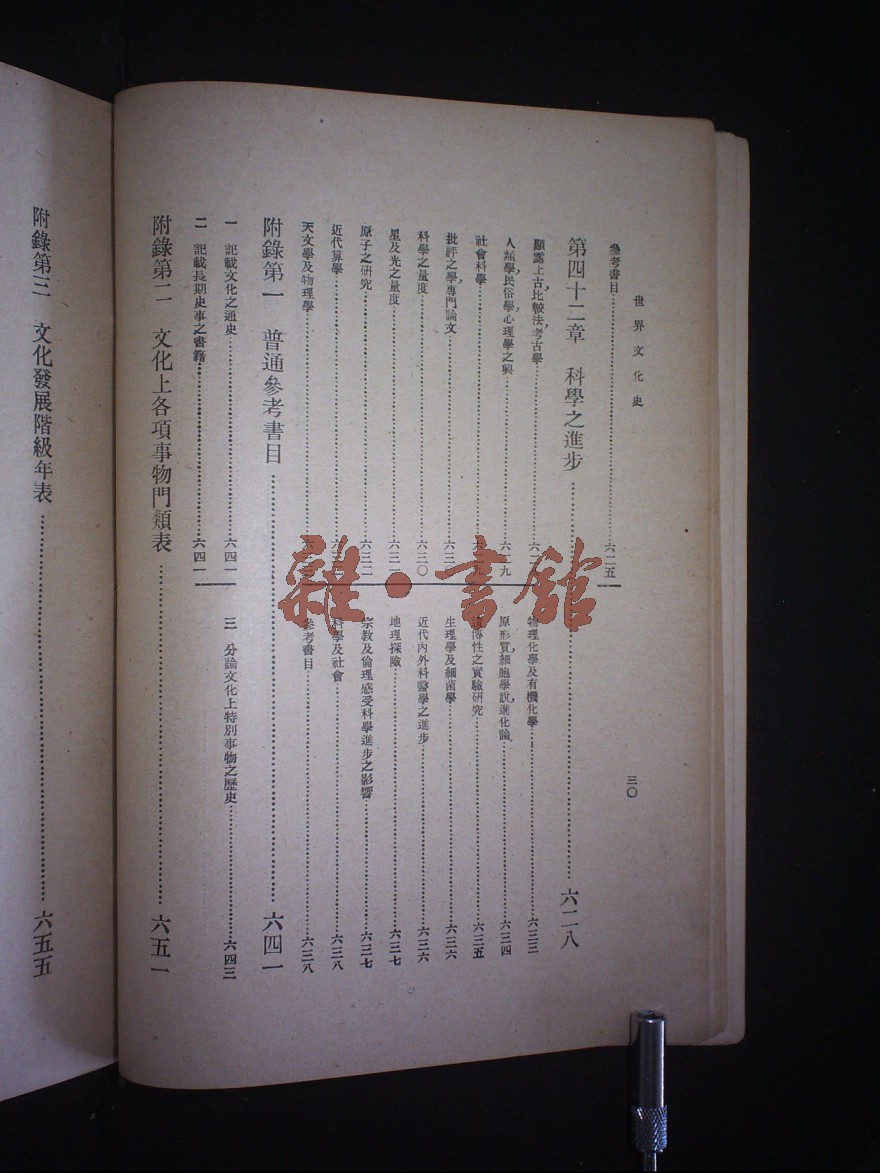 世界文化史
三〇
參考書目……六二五
第四十二章　科學之進步……六二八
顯露上古，比較法，考古學……六二
人類學，民俗學，心理學之興……六二九
社會科學……九
批評之學，專門論文……六二
科學之量度……六三〇
星及光之量度……六三二
原子之研究……六三二
近代算學
天文學及物理學
物理化學及有機化學……六三三
原形質，細胞學說，進化論……六三四
傳性之實驗研究……六三五
生理學及細菌學……六三六
近代內外科醫學之進步……六三六
地理探險……六三七
宗教及倫理感受科學進步之影響……六三七
科學及社會……六三八
參考書目……六三八
附錄第一　普通參考書目……六四一
一　記載文化之通史……六四一
二　記載長期史事之書籍……六四一
三　分論文化上特別事物之歷史……六四三
附錄第二　文化上各項事物門類表……六五一
附錄第三　文化發展階級年表……六五五
雜·書館